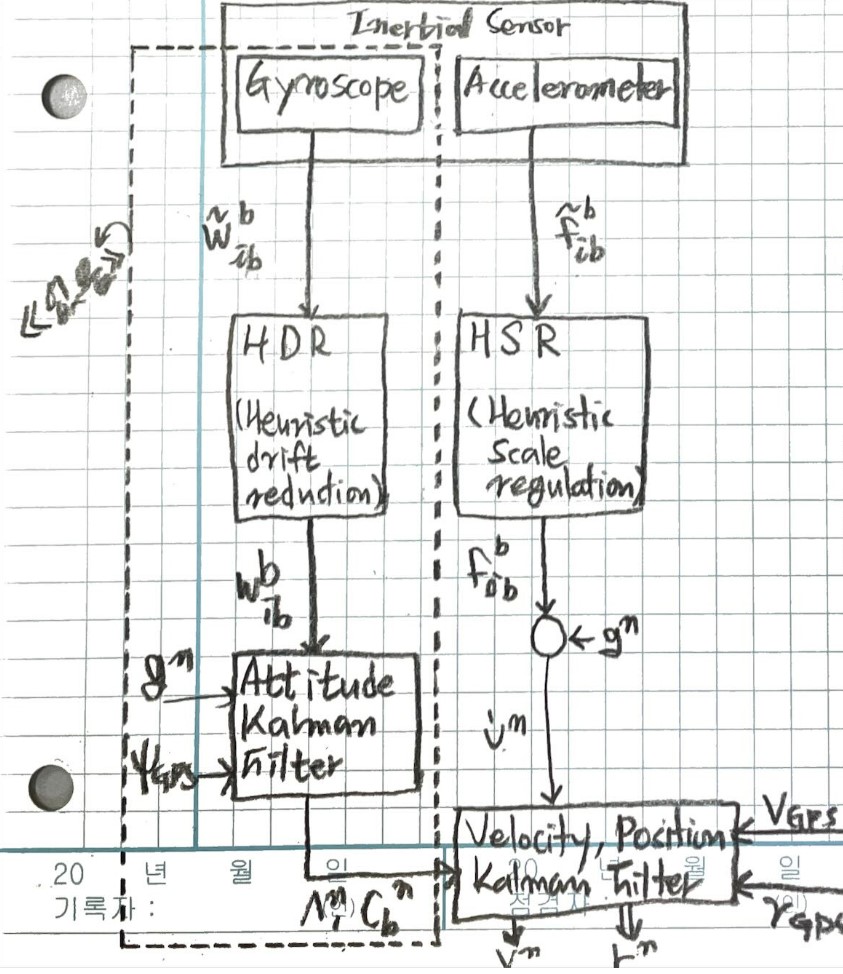 Inertial Sensor
Gyroscope
Accelerometer
w̃ᵇ
ib
f̃ᵇ
ib
HDR
(Heuristic
drift
reduction)
HSR
(Heuristic
Scale
regulation)
wᵇ
ib
fᵇ
ib
gⁿ
gⁿ
Attitude
Kalman
Filter
ψGPS
v̇ⁿ
Velocity, Position
Kalman Filter
VGPS
rGPS
Cbⁿ
vⁿ
rⁿ
20 년 월 일
기록자 :
20 년 월 일
점검자 :